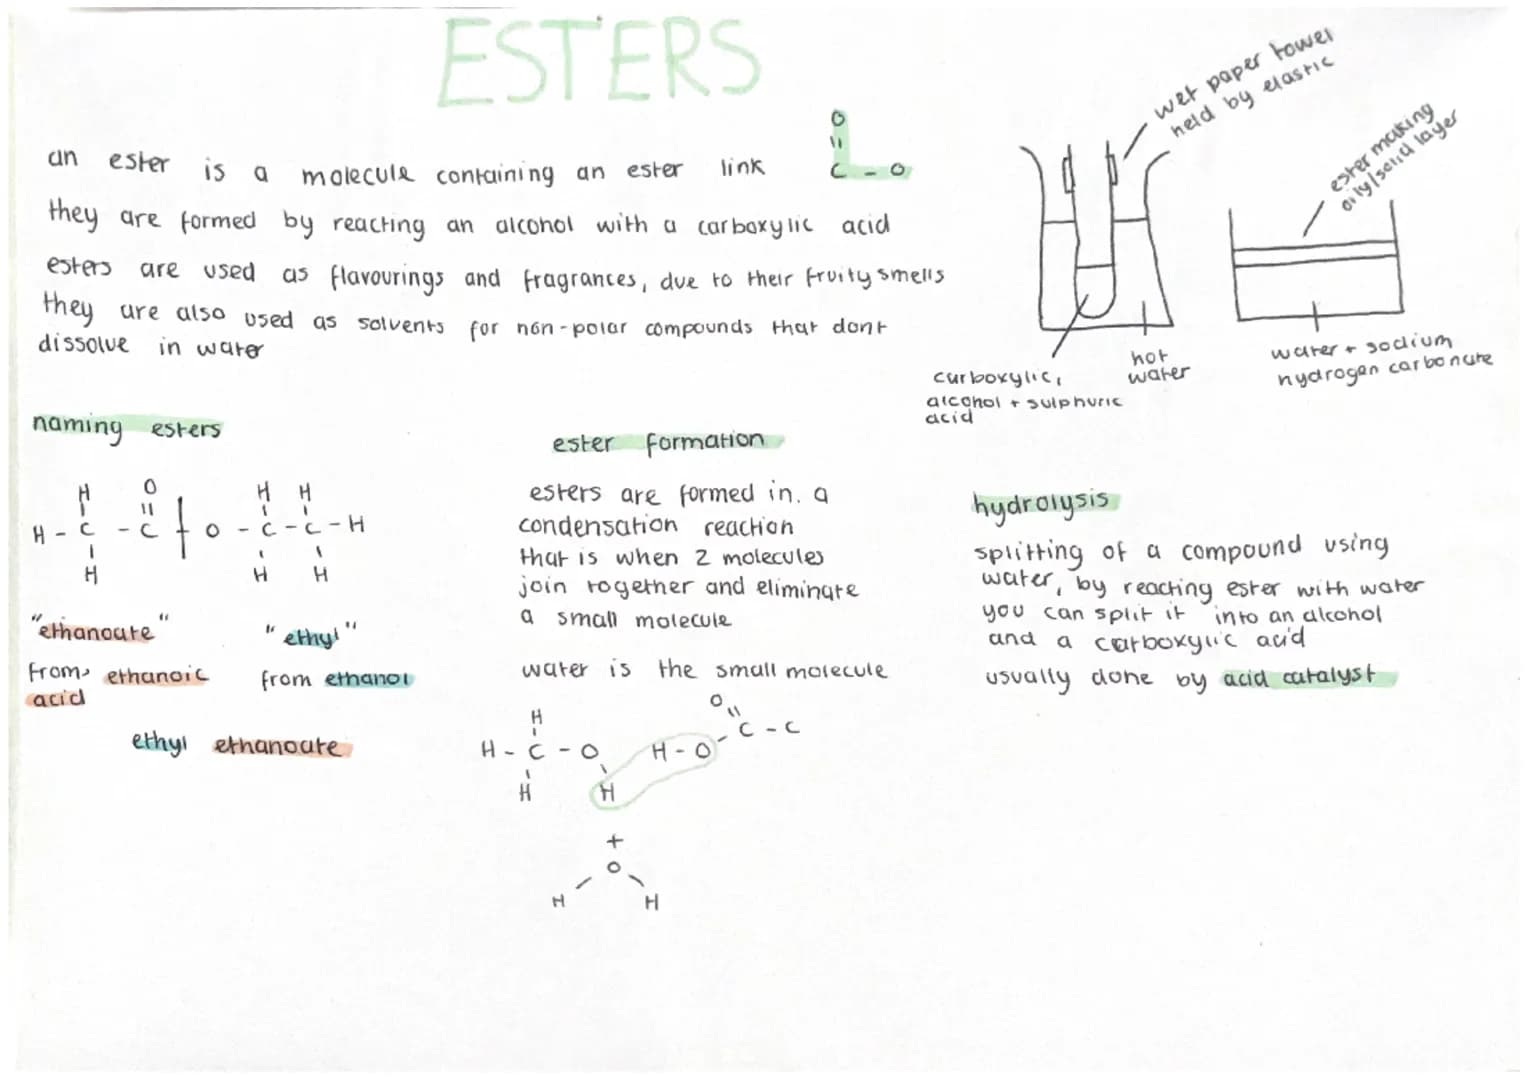 ESTERS
an ester is a molecule containing an ester link
O
=
C - O
they are formed by reacting an alcohol with a carboxylic acid
esters are used as flavourings and fragrances, due to their fruity smells
they are also used as solvents for non-polar compounds that dont
dissolve in water
wet paper towel
held by elastic
ester making
oily/solid layer
carboxylic,
alcohol + sulphuric
acid
hot
water
water + sodium
hydrogen carbonate
naming esters
H O H H
H - C - C + O - C - C - H
H H H
"ethanoate" "ethyl"
from ethanoic
acid
from ethanol
ethyl ethanoate
ester formation
esters are formed in a
condensation reaction
that is when 2 molecules
join together and eliminate
a small molecule
water is the small molecule
H O
H - C - O H - O - C - C
H H
+
O
H H
hydrolysis
splitting of a compound using
water, by reacting ester with water
you can split it into an alcohol
and a carboxylic acid
usually done by acid catalyst